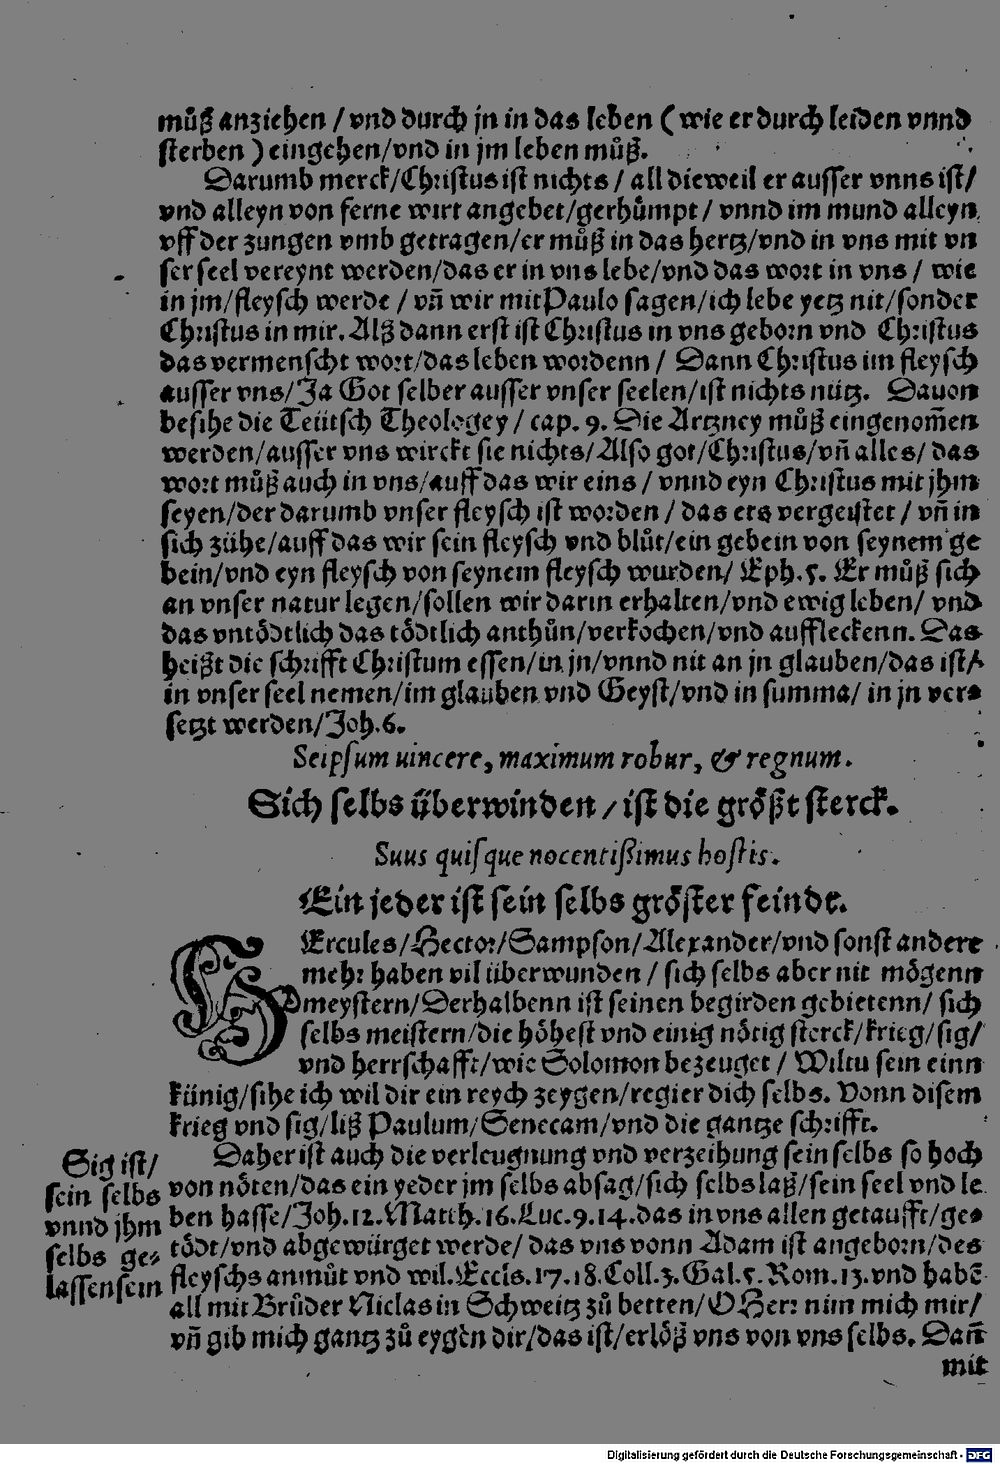 můß anziehen / vnd durch jn in das leben ( wie er durch leiden vnnd
sterben ) eingehen/vnd in jm leben můß.
Darumb merck/Christus ist nichts / all dieweil er ausser vnns ist/
vnd alleyn von ferne wirt angebet/gerhůmpt / vnnd im mund alleyn
vff der zungen vmb getragen/er můß in das hertz/vnd in vns mit vn
ser seel vereynt werden/das er in vns lebe/vnd das wort in vns / wie
in jm/fleysch werde / vn̄ wir mit Paulo sagen/ich lebe yetz nit/sonder
Christus in mir. Alß dann erst ist Christus in vns geborn vnd Christus
das vermenscht wort/das leben wordenn / Dann Christus im fleysch
ausser vns/Ja Got selber ausser vnser seelen/ist nichts nütz. Dauon
besihe die Teütsch Theologey / cap. 9. Die Artzney můß eingenom̄en
werden/ausser vns wirckt sie nichts/Also got/Christus/vn̄ alles/ das
wort můß auch in vns/auff das wir eins / vnnd eyn Christus mit jhm
seyen/der darumb vnser fleysch ist worden / das ers vergeystet / vn̄ in
sich zühe/auff das wir sein fleysch vnd blůt/ein gebein von seynem ge
bein/vnd eyn fleysch von seynem fleysch wurden/ Eph.5. Er můß sich
an vnser natur legen/sollen wir darin erhalten/vnd ewig leben/ vnd
das vntödtlich das tödtlich anthůn/verkochen/vnd auffleckenn. Das
heißt die schrifft Christum essen/in jn/vnnd nit an jn glauben/das ist/
in vnser seel nemen/im glauben vnd Geyst/vnd in summa/ in jn ver⸗
setzt werden/Joh.6.
Seipsum uincere, maximum robur, & regnum.
Sich selbs überwinden / ist die größt sterck.
Suus quisque nocentißimus hostis.
Ein jeder ist sein selbs gröster feindt.
HErcules/Hector/Sampson/Alexander/vnd sonst andere
mehr haben vil überwunden / sich selbs aber nit mögenn
meystern/Derhalbenn ist seinen begirden gebietenn/ sich
selbs meistern/die höhest vnd einig nötig sterck/krieg/sig/
vnd herrschafft/wie Solomon bezeuget / Wiltu sein einn
künig/sihe ich wil dir ein reych zeygen/regier dich selbs. Vonn disem
krieg vnd sig/liß Paulum/Senecam/vnd die gantze schrifft.
Daher ist auch die verleugnung vnd verzeihung sein selbs so hoch
von nöten/das ein yeder jm selbs absag/sich selbs laß/sein seel vnd le
ben hasse/Joh.12.Matth.16.Luc.9.14.das in vns allen getaufft/ge⸗
tödt/vnd abgewürget werde/ das vns vonn Adam ist angeborn/des
fleyschs anmůt vnd wil.Eccls.17.18.Coll.3.Gal.5.Rom.13.vnd habē
all mit Brůder Niclas in Schweitz zů betten/O Herr nim mich mir/
vn̄ gib mich gantz zů eygen dir/das ist/erlöß vns von vns selbs. Dan̄
mit
Sig ist/
sein selbs
vnnd jhm
selbs ge⸗
lassen sein
Digitalisierung gefördert durch die Deutsche Forschungsgemeinschaft - DFG